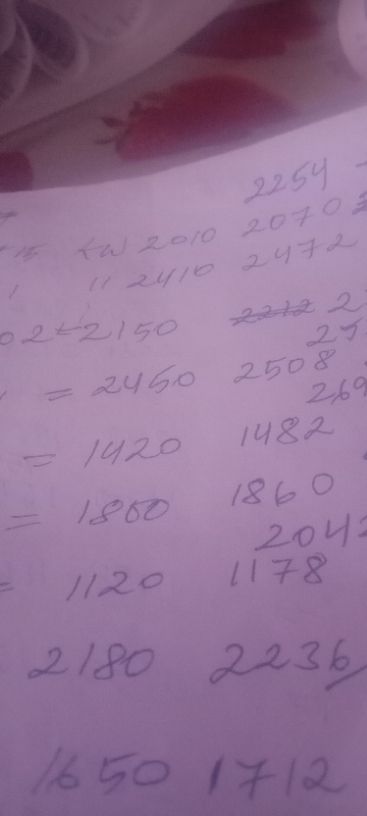 2254
15 2010 2070
11 2410 2472
02 2150 2212 2
= 2450 2508
= 1420 1482
= 1860
2042
= 1120 1178
2180 2236
1650 1712